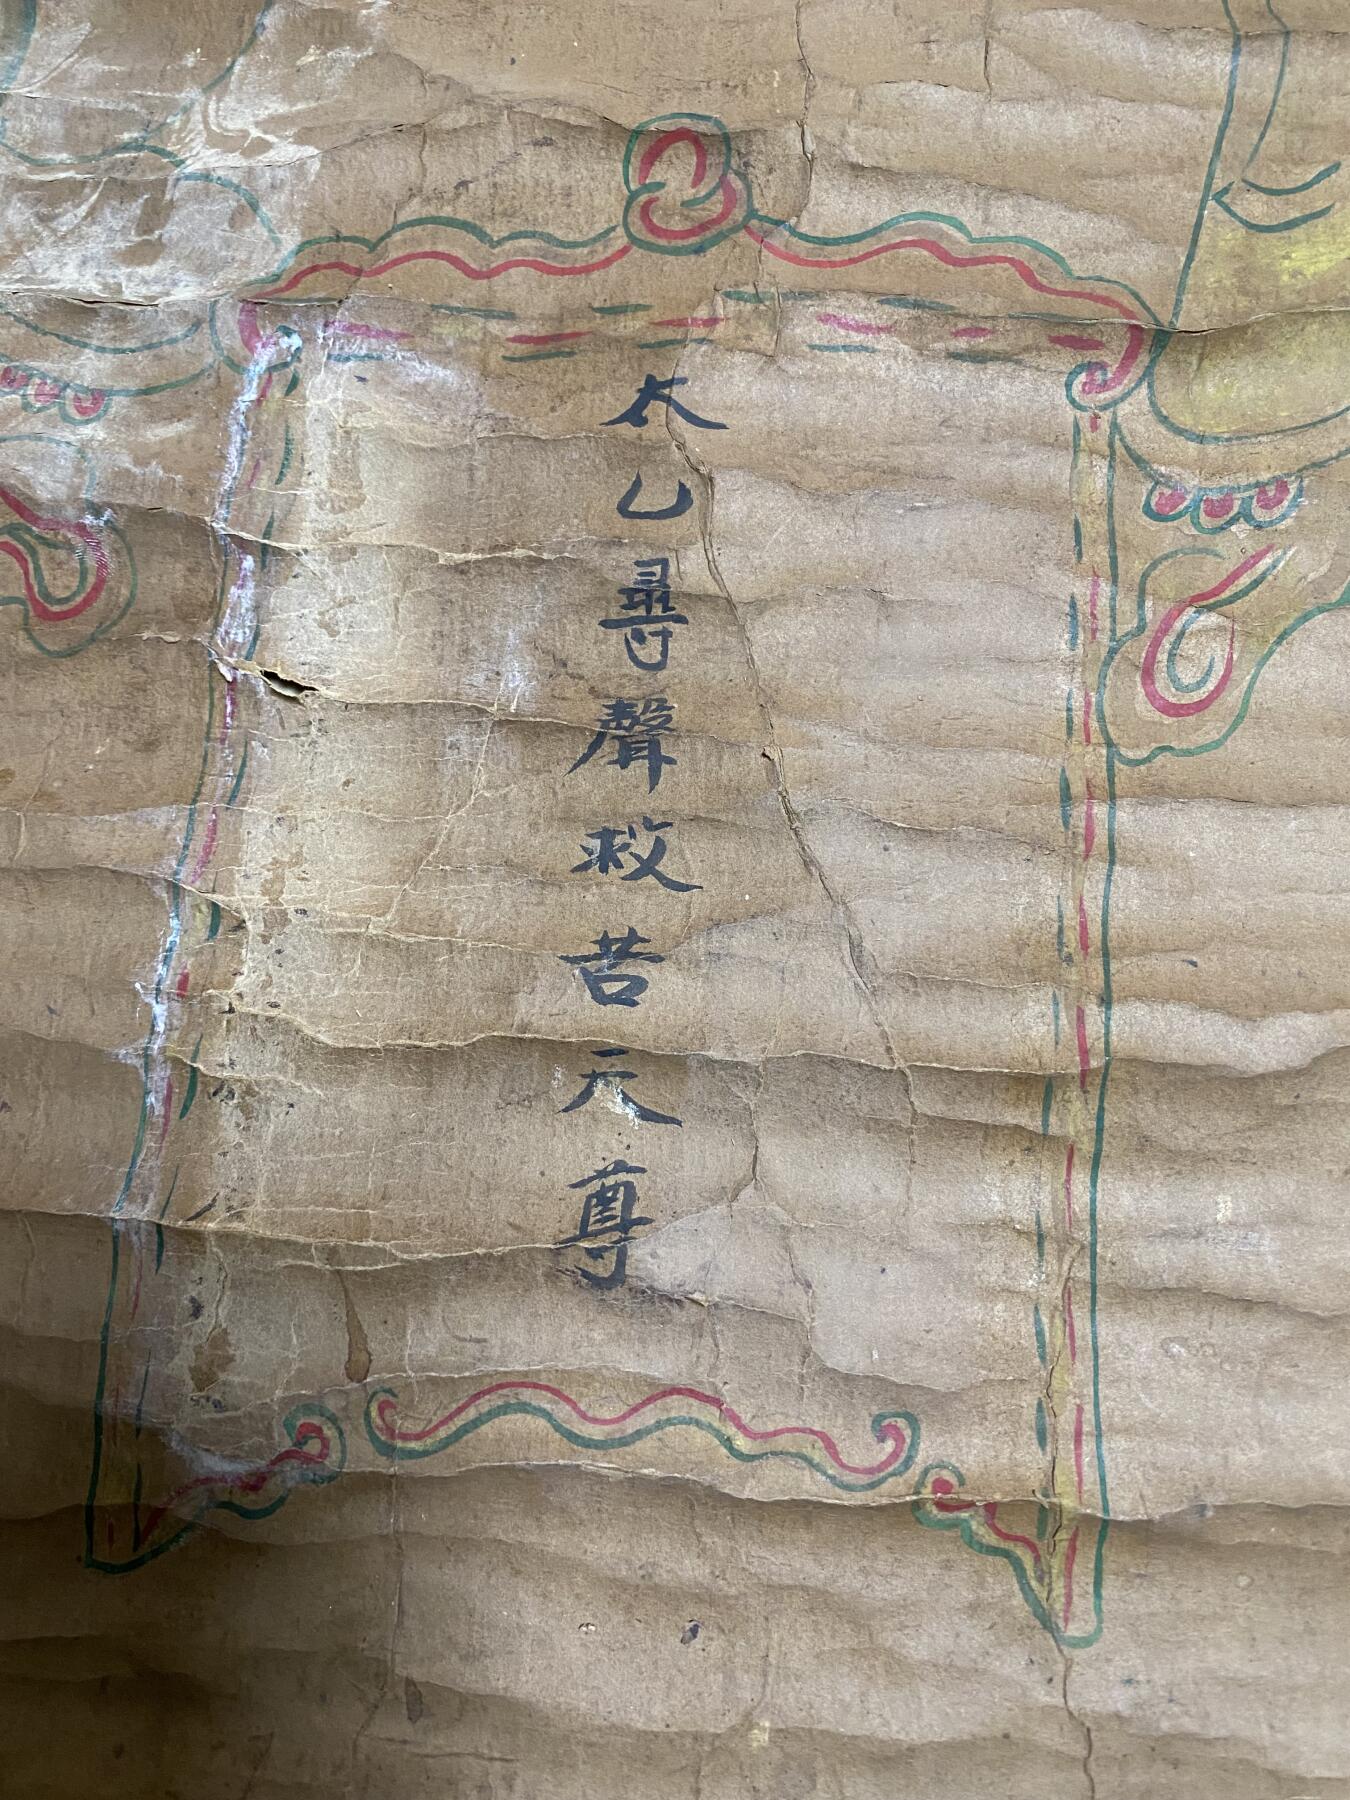 太乙尋聲救苦天尊